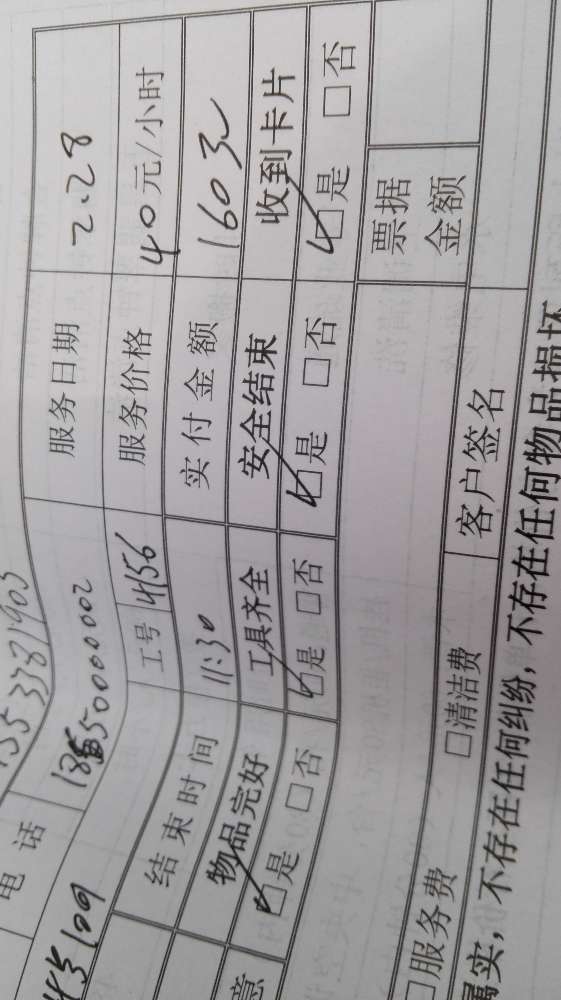 电话 1553381903 服务日期 2.28
45109 18650000002 服务价格 40元/小时
工号 4156 实付金额 1603
结束时间 11:30
物品完好 工具齐全 安全结束 收到卡片
☑是 □否 ☑是 □否 ☑是 □否 ☑是 □否
意 票据金额
□服务费 □清洁费 客户签名
属实，不存在任何纠纷，不存在任何物品损坏